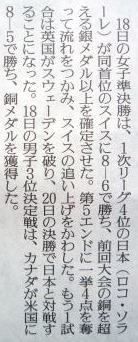 18日の女子準決勝は、1次リーグ4位の日本（ロコ・ソラ
ーレ）が同首位のスイスに8－6で勝ち、前回大会の銅を超
える銀メダル以上を確定させた。第5エンドに一挙4点を奪
って流れをつかみ、スイスの追い上げをかわした。もう一試
合は英国がスウェーデンを破り、20日の決勝で日本と対戦す
ることになった。18日の男子3位決定戦は、カナダが米国に
8－5で勝ち、銅メダルを獲得した。